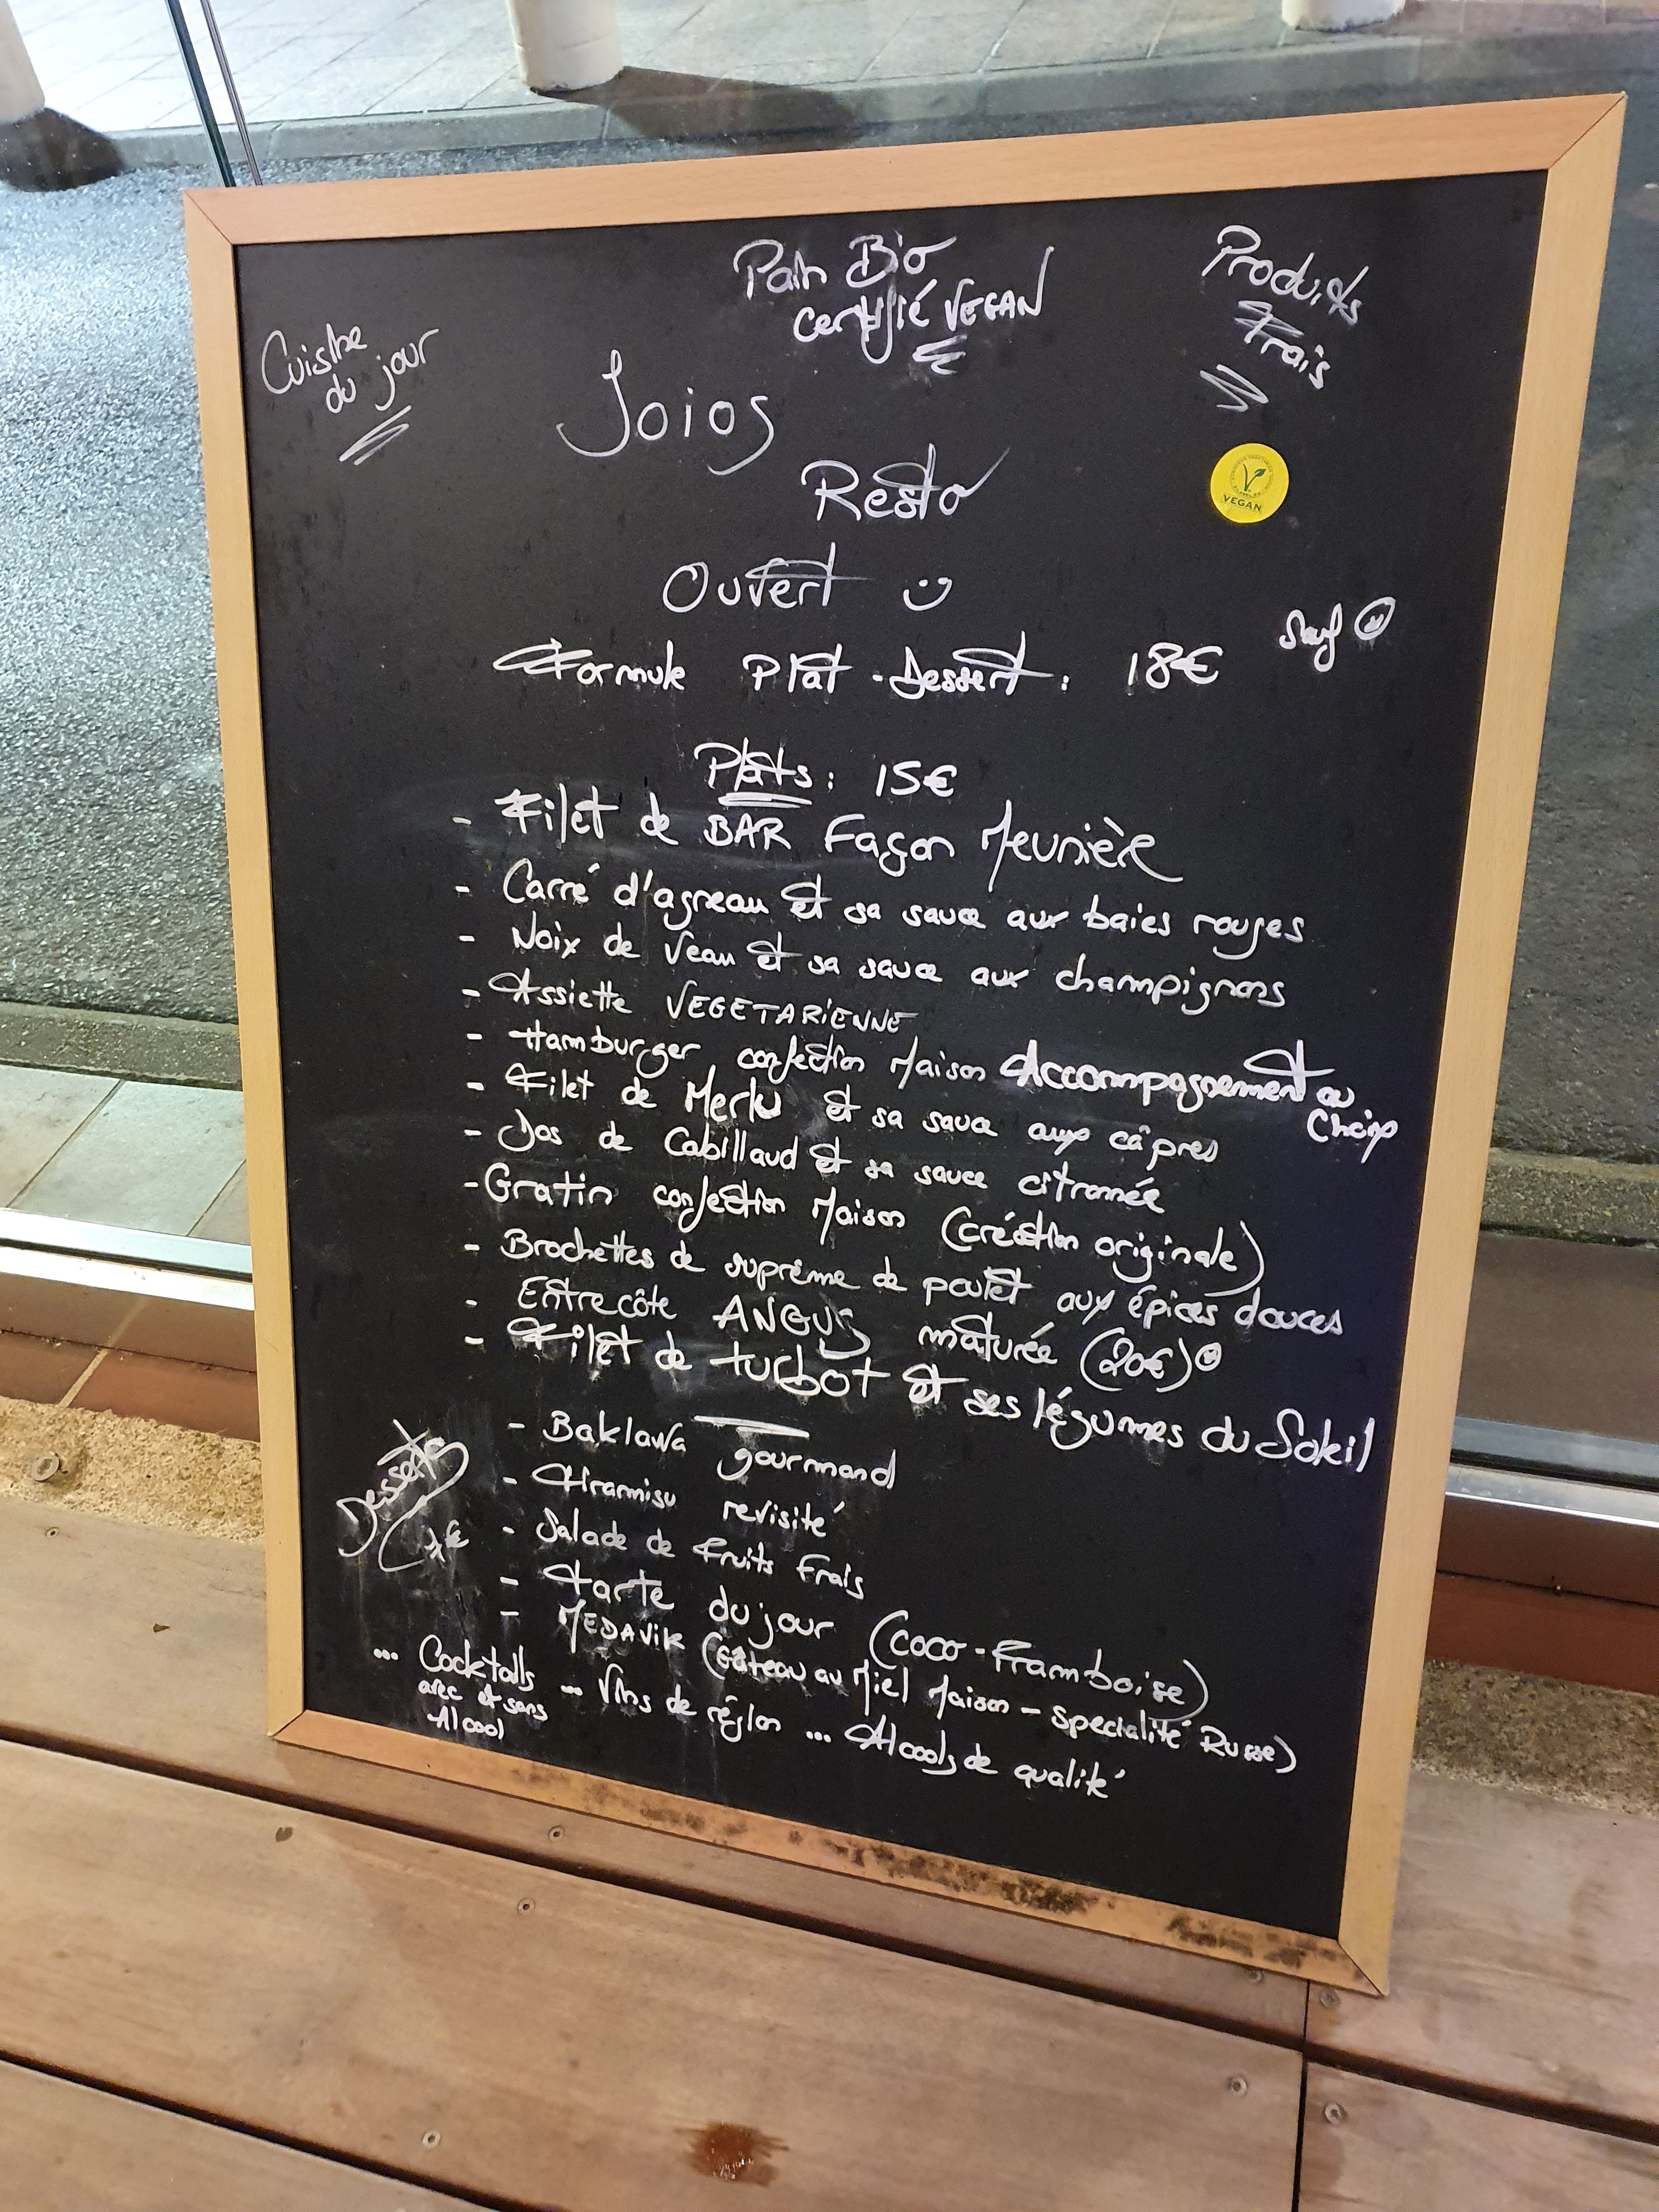 Pain Bio
certifié VEGAN
Produits
Frais
Cuisine
du jour
Joios
Resto
VEGAN
Ouvert
Formule Plat - Dessert : 18€
sauf
Plats : 15€
- Filet de BAR Façon Meunière
- Carré d'agneau et sa sauce aux baies rouges
- Noix de Veau et sa sauce aux champignons
- Assiette VEGETARiENNE
- Hamburger confection Maison
Accompagnement au
Choix
- Filet de Merlu et sa sauce aux câpres
- Dos de Cabillaud et sa sauce citronnée
- Gratin confection Maison (création originale)
- Brochettes de suprême de poulet aux épices douces
- Entrecôte ANGUS maturée (20€)
- Filet de turbot et ses légumes du Soleil
Desserts
7€
- Baklawa gourmand
- Tiramisu revisité
- Salade de Fruits Frais
- Tarte du jour (coco - Framboise)
- MEDAVIK (Gâteau au Miel Maison - spécialité Russe)
... Cocktails ... Vins de région ... Alcools de qualité
avec et sans
Alcool